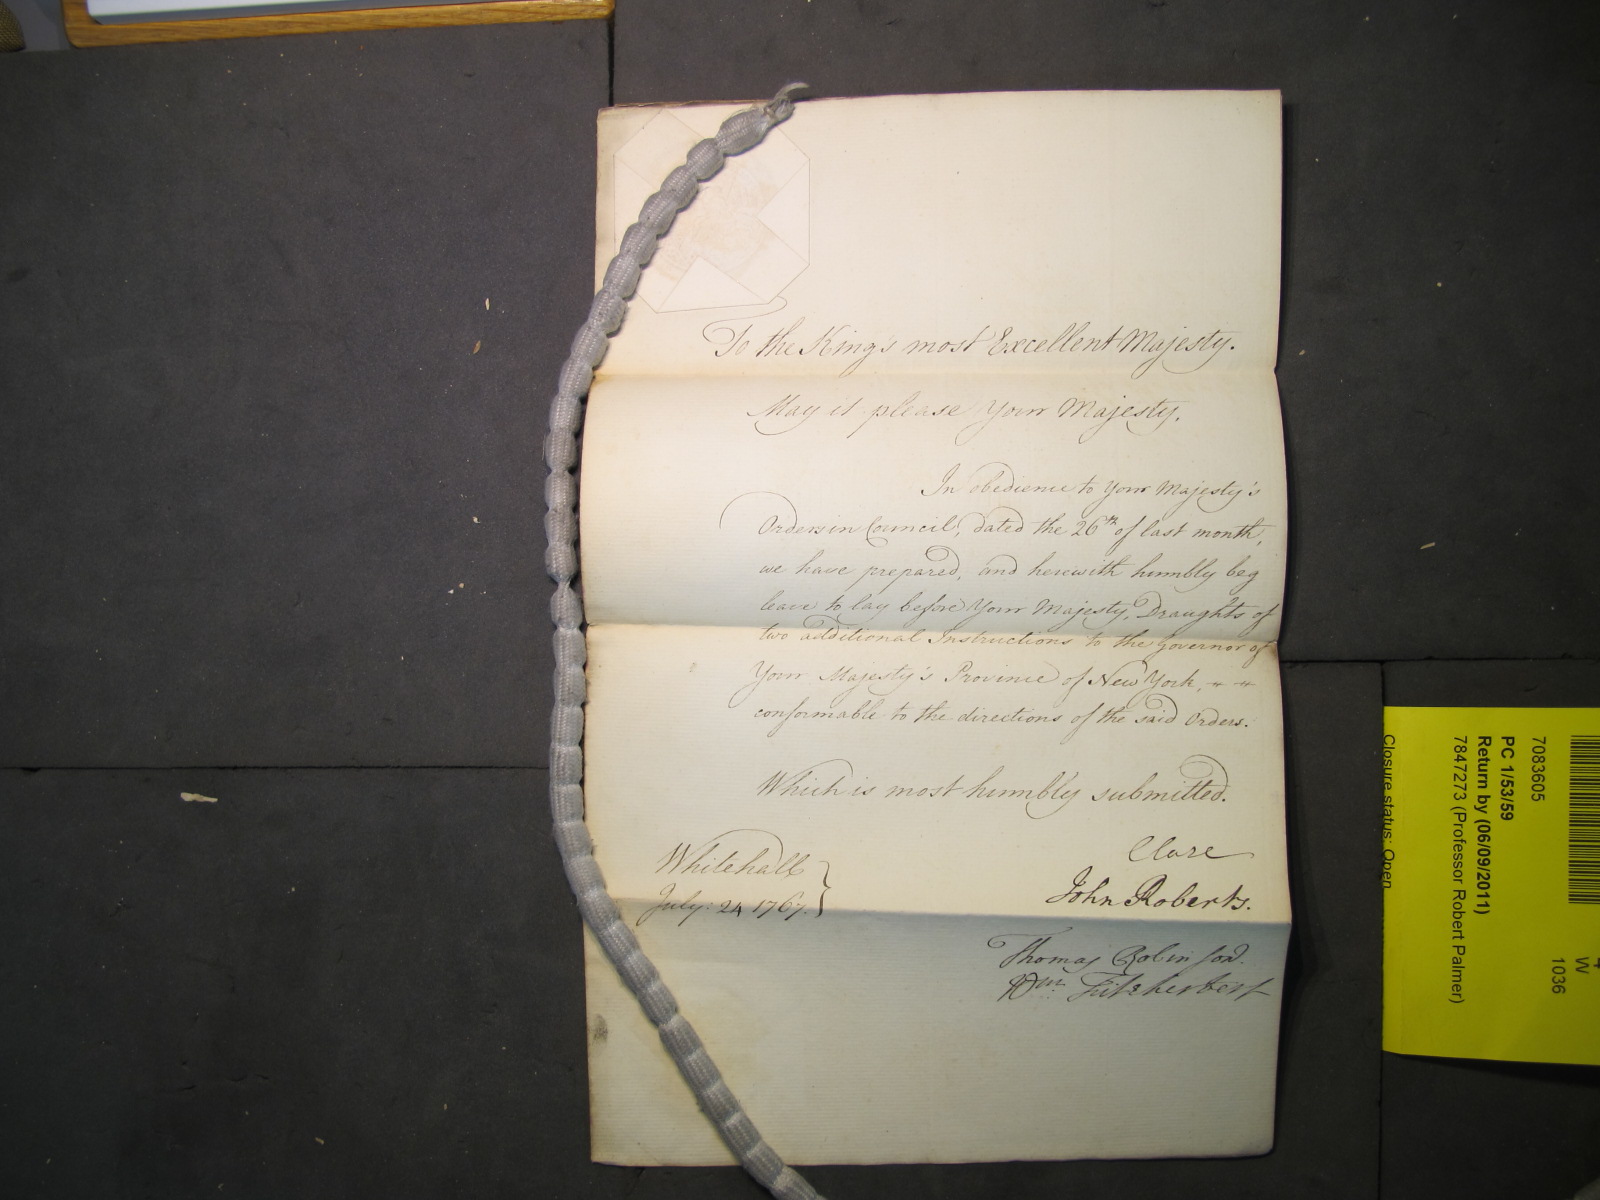 To the King's most Excellent Majesty.
May it please Your Majesty,
In obedience to Your Majesty's
Orders in Council, dated the 26th of last month,
we have prepared, and herewith humbly beg
leave to lay before Your Majesty, Draughts of
two additional Instructions to the Governor of
Your Majesty's Province of New York,
conformable to the directions of the said Orders.
Which is most humbly submitted.
Clare
John Roberts.
Thomas Robinson.
Wm Fitzherbert
Whitehall
July: 24 1767.
7083605
PC 1/53/59
Return by (06/09/2011)
7847273 (Professor Robert Palmer)
Closure status: Open
W
1036